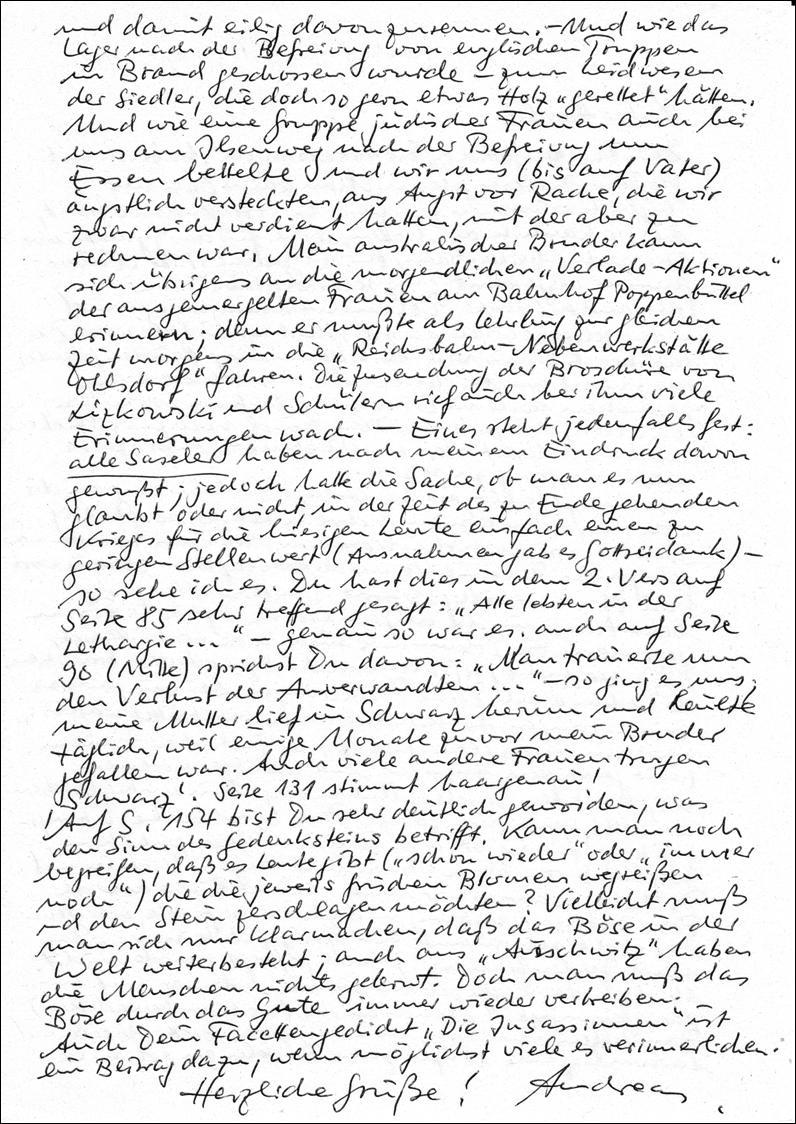 und damit eilig davonzurennen. – Und wie das
Lager nach der Befreiung von englischen Truppen
in Brand geschossen wurde – zum Leidwesen
der Siedler, die doch so gern etwas Holz „gerettet“ hätten.
Und wie eine Gruppe jüdischer Frauen auch bei
uns am Ilsenweg nach der Befreiung um
Essen bettelte und wir uns (bis auf Vater)
ängstlich versteckten, aus Angst vor Rache, die wir
zwar nicht verdient hatten, mit der aber zu
rechnen war. Mein australischer Bruder kann
sich übrigens an die morgendlichen „Verlade-Aktionen“
der ausgemergelten Frauen am Bahnhof Poppenbüttel
erinnern; denn er mußte als Lehrling zur gleichen
Zeit morgens in die „Reichsbahn-Nebenwerkstätte
Ohlsdorf“ fahren. Die Zusendung der Broschüre von
Lizkowski und Schülern rief auch bei ihm viele
Erinnerungen wach. – Eines steht jedenfalls fest:
alle Saseler haben nach meinem Eindruck davon
gewußt; jedoch hatte die Sache, ob man es nun
glaubt oder nicht, in der Zeit des zu Ende gehenden
Krieges für die hiesigen Leute einfach einen zu
geringen Stellenwert (Ausnahmen gab es Gottseidank) –
so sehe ich es. Du hast dies in dem 2. Vers auf
Seite 85 sehr treffend gesagt: „Alle lebten in der
Lethargie ...“ – genau so war es. Auch auf Seite
90 (Mitte) sprichst Du davon: „Man trauerte um
den Verlust der Anverwandten ...“ – so ging es uns;
meine Mutter lief in Schwarz herum und heulte
täglich, weil einige Monate zuvor mein Bruder
gefallen war. Auch viele andere Frauen trugen
'Schwarz'. Seite 131 stimmt haargenau!
! Auf S. 154 bist Du sehr deutlich geworden, was
den Sinn des Gedenksteins betrifft. Kann man noch
begreifen, daß es Leute gibt („schon wieder“ oder „immer
noch“) die die jeweils frischen Blumen wegreißen
und den Stein zerschlagen möchten? Vielleicht muß
man sich nur klarmachen, daß das Böse in der
Welt weiterbesteht; auch aus „Auschwitz“ haben
die Menschen nichts gelernt. Doch man muß das
Böse durch das Gute immer wieder vertreiben.
Auch Dein Facettengedicht „Die Insassinnen“ ist
ein Beitrag dazu, wenn möglichst viele es verinnerlichen.
Herzliche Grüße! Andreas